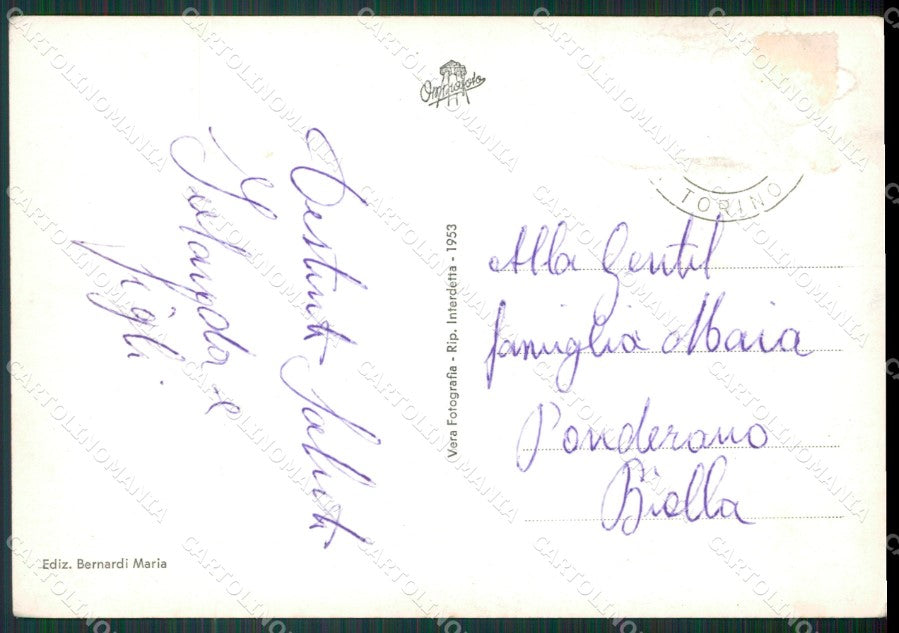 Omniafoto
TORINO
Distinti Saluti
e
figli
Vera Fotografia - Rip. Interdetta - 1953
Alla Gentil
famiglia Maia
Ponderano
Biella
Ediz. Bernardi Maria
CARTOLINOMANIA